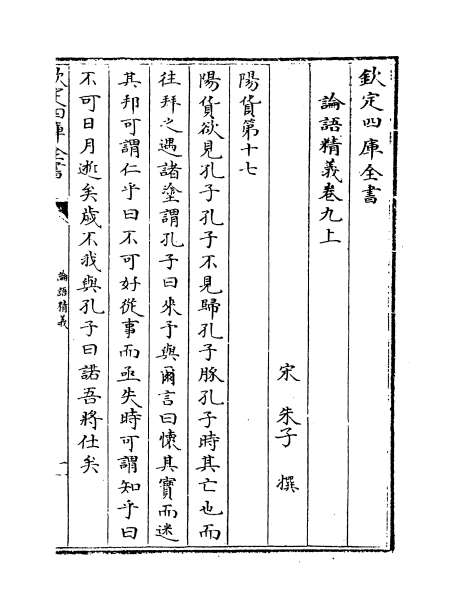 欽定四庫全書
論語精義卷九上
宋 朱子 撰
陽貨第十七
陽貨欲見孔子孔子不見歸孔子豚孔子時其亡也而
往拜之遇諸塗謂孔子曰來予與爾言曰懷其寶而迷
其邦可謂仁乎曰不可好從事而亟失時可謂知乎曰
不可日月逝矣歲不我與孔子曰諾吾將仕矣
欽定四庫全書
論語精義
一